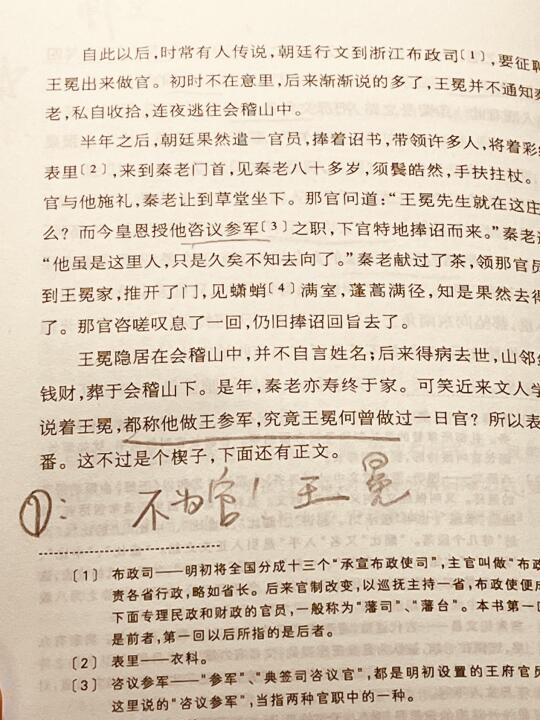 自此以后，时常有人传说，朝廷行文到浙江布政司〔1〕，要征聘
王冕出来做官。初时不在意里，后来渐渐说的多了，王冕并不通知秦
老，私自收拾，连夜逃往会稽山中。
半年之后，朝廷果然遣一官员，捧着诏书，带领许多人，将着彩缎
表里〔2〕，来到秦老门首，见秦老八十多岁，须鬓皓然，手扶拄杖。
官与他施礼，秦老让到草堂坐下。那官问道：“王冕先生就在这庄
么？而今皇恩授他咨议参军〔3〕之职，下官特地捧诏而来。”秦老道
“他虽是这里人，只是久矣不知去向了。”秦老献过了茶，领那官员
到王冕家，推开了门，见蟏蛸〔4〕满室，蓬蒿满径，知是果然去得
了。那官咨嗟叹息了一回，仍旧捧诏回旨去了。
王冕隐居在会稽山中，并不自言姓名；后来得病去世，山邻
钱财，葬于会稽山下。是年，秦老亦寿终于家。可笑近来文人学
说着王冕，都称他做王参军，究竟王冕何曾做过一日官？所以表
番。这不过是个楔子，下面还有正文。
①：不为官！王冕
〔1〕 布政司——明初将全国分成十三个“承宣布政使司”，主官叫做“布政
责各省行政，略如省长。后来官制改变，以巡抚主持一省，布政使便成
下面专理民政和财政的官员，一般称为“藩司”、“藩台”。本书第一回
是前者，第一回以后所指的是后者。
〔2〕 表里——衣料。
〔3〕 咨议参军——“参军”、“典签司咨议官”，都是明初设置的王府官员
这里说的“咨议参军”，当指两种官职中的一种。